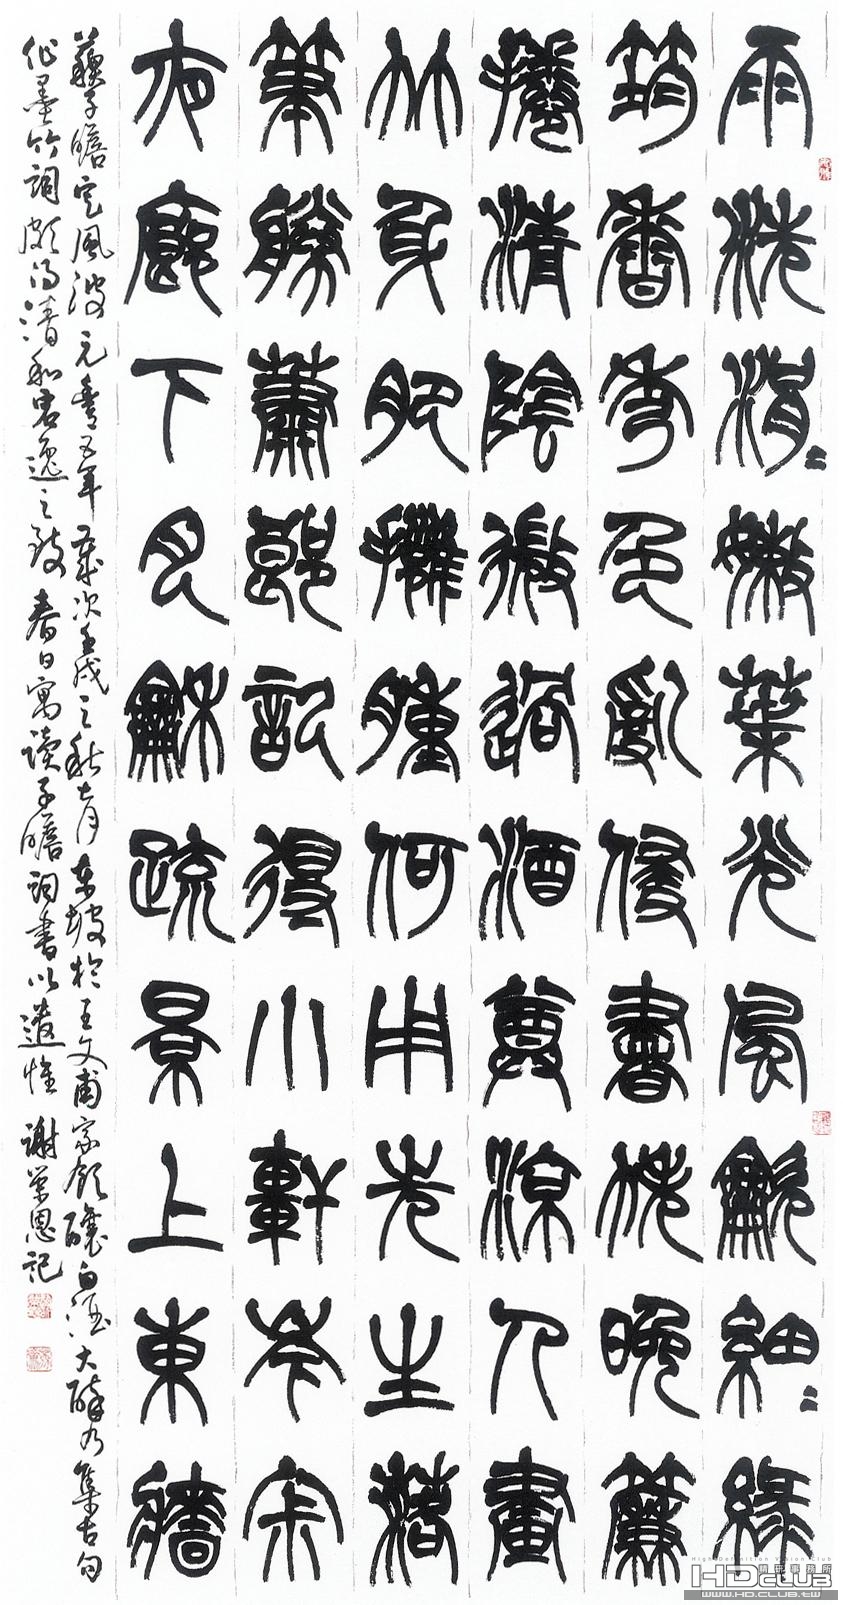 雨洗涓〻嫩葉光風龡細〻綠
筠香秀色亂侵書帙晚簾
捲清陰微過酒尊涼人畫
竹身肥擁腫何用先生落
筆勝蕭郎記得小軒岑宋
夜廊下月龢疏景上東牆
蘇子瞻定風波 元豐五年歲次壬戌之秋七月東坡於王文甫家飲釀白酒大醉乃集古句
作墨竹詞頗得清和宕逸之致 春日寓讀子瞻詞書以遣惟 謝榮恩記
High Definition Vision Club
HDCLUB
WWW.HD.CLUB.TW